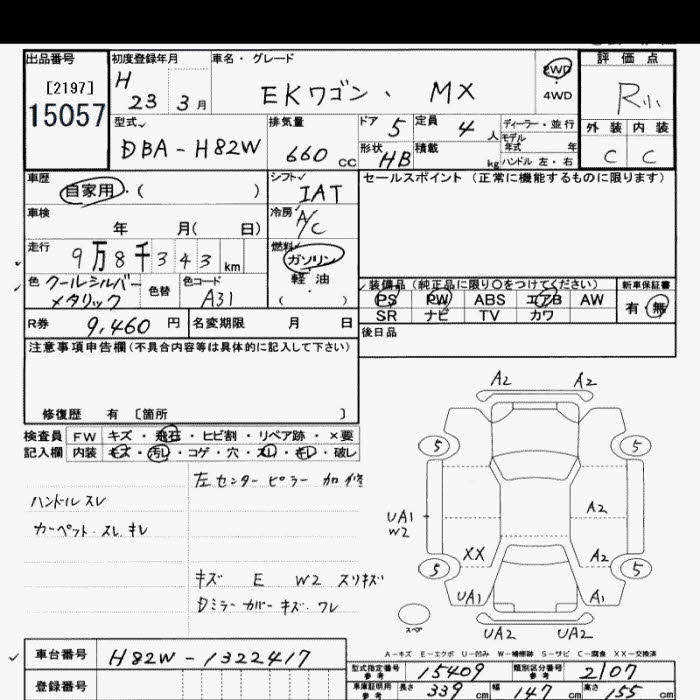 出品番号 初度登録年月 車名・グレード 2WD 評価点
[2197] H 4WD
15057 23 3月 EKワゴン、 MX R小
型式 排気量 ドア 5 定員 4人 ディーラー・並行 外装 内装
DBA-H82W 660cc 形状 HB 積載 kg モデル年式 年 C C
ハンドル 左・右
車歴 自家用・( ) シフト IAT セールスポイント (正常に機能するものに限ります)
車検 年 月( 日) 冷房 A/C
走行 9万8千343km 燃料 ガソリン
軽油
( )
色 クールシルバーメタリック 色替 色コード A31
装備品 (純正品に限り○をつけてください) 新車保証書
PS PW ABS エアB AW 有・無
SR ナビ TV カワ
R券 9,460円 名変期限 月 日 後日品
注意事項申告欄(不具合内容等は具体的に記入して下さい)
修復歴 有 [箇所 ]
検査員 FW キズ・飛石・ヒビ割・リペア跡・×要
記入欄 内装 キズ・汚レ・コゲ・穴・スレ・キレ・破レ
左センターピラー加修
ハンドルスレ
カーペット・スレ、キレ
キズ E W2 スリキズ
Dミラーカバーキズ ワレ
A2 A2
5 5
UA1 A2
W2
XX A2
5 5
UA1 A1
スペア
UA2 UA2
A-キズ E-エクボ U-凹み W-補修跡 S-サビ C-腐食 XX-交換済
車台番号 H82W-1322417
型式指定番号 参考 15409 類別区分番号 参考 2107
登録番号
車庫証明用 参考 長さ 339cm 幅 147cm 高さ 155cm